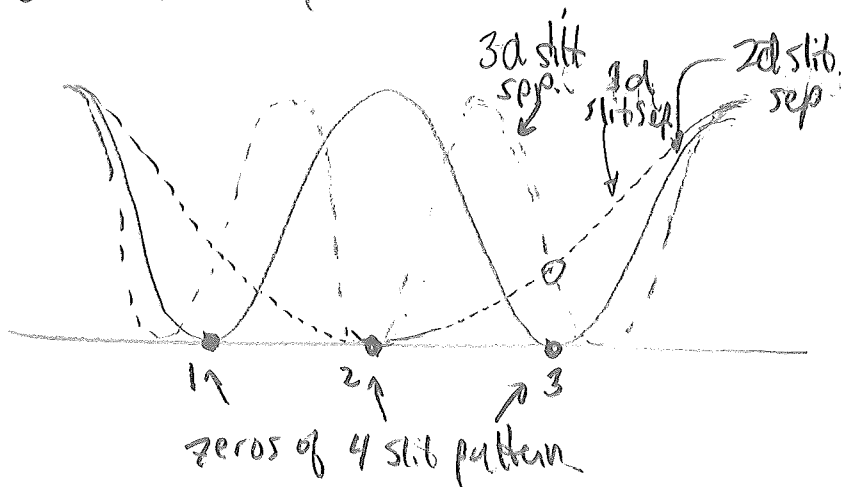 3d slit
sep.
1d
slit sep
2d slit.
sep
1 2 3
zeros of 4 slit pattern